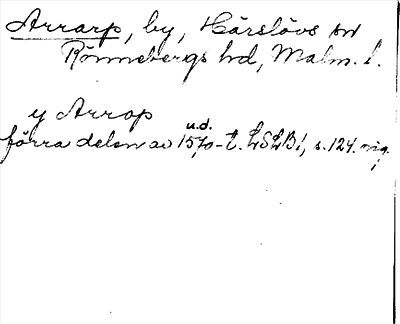 Arrarp, by, Härslövs sn
Rönnebergs hd, Malm. l.
y Arrop
u.d.
förra delen av 1570-t. LSLB1, s. 124. orig.